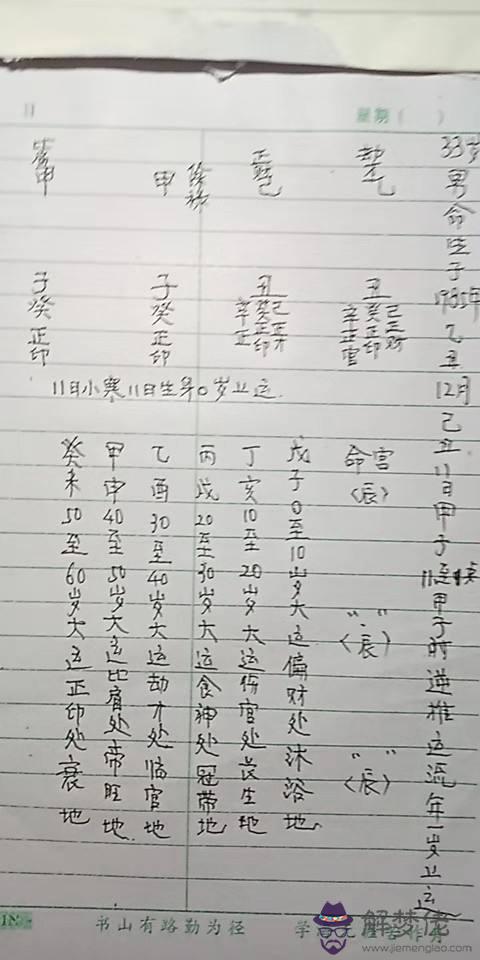 11
星期（ ）
33岁男命生于1985年乙丑12月己丑11日甲子11至1点甲子时逆推运流年一岁上运
劫 乙
正财 己
徐祿
甲
比肩 甲
丑 己正财 癸正印 辛正官
丑 己正才 癸正印 辛正
子 癸 正印
子 癸 正印
11日小寒11日生算0岁上运.
命宫〈辰〉 " "〈辰〉 " "〈辰〉
戊子0至10岁大运偏财处沐浴地.
丁亥10至20岁大运伤官处长生地
丙戌20至30岁大运食神处冠带地
乙酉30至40岁大运劫才处临官地
甲申40至50岁大运比肩处帝旺地.
癸未50至60岁大运正印处衰地
18
书山有路勤为径
解梦佬
www.jiemenglao.com